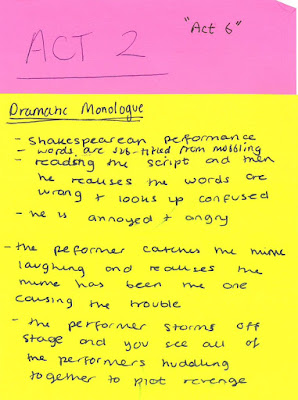 "Act 6"
ACT 2
Dramatic Monologue
- Shakespearean performance
- words are sub-titled from
- reading the script and then
he realises the words are
wrong + looks up confused
- he is annoyed + angry
- the performer catches the mime
laughing and realises the
mime has been the one
causing the trouble
- the performer storms off
stage and you see all of
the performers huddling
together to plot revenge